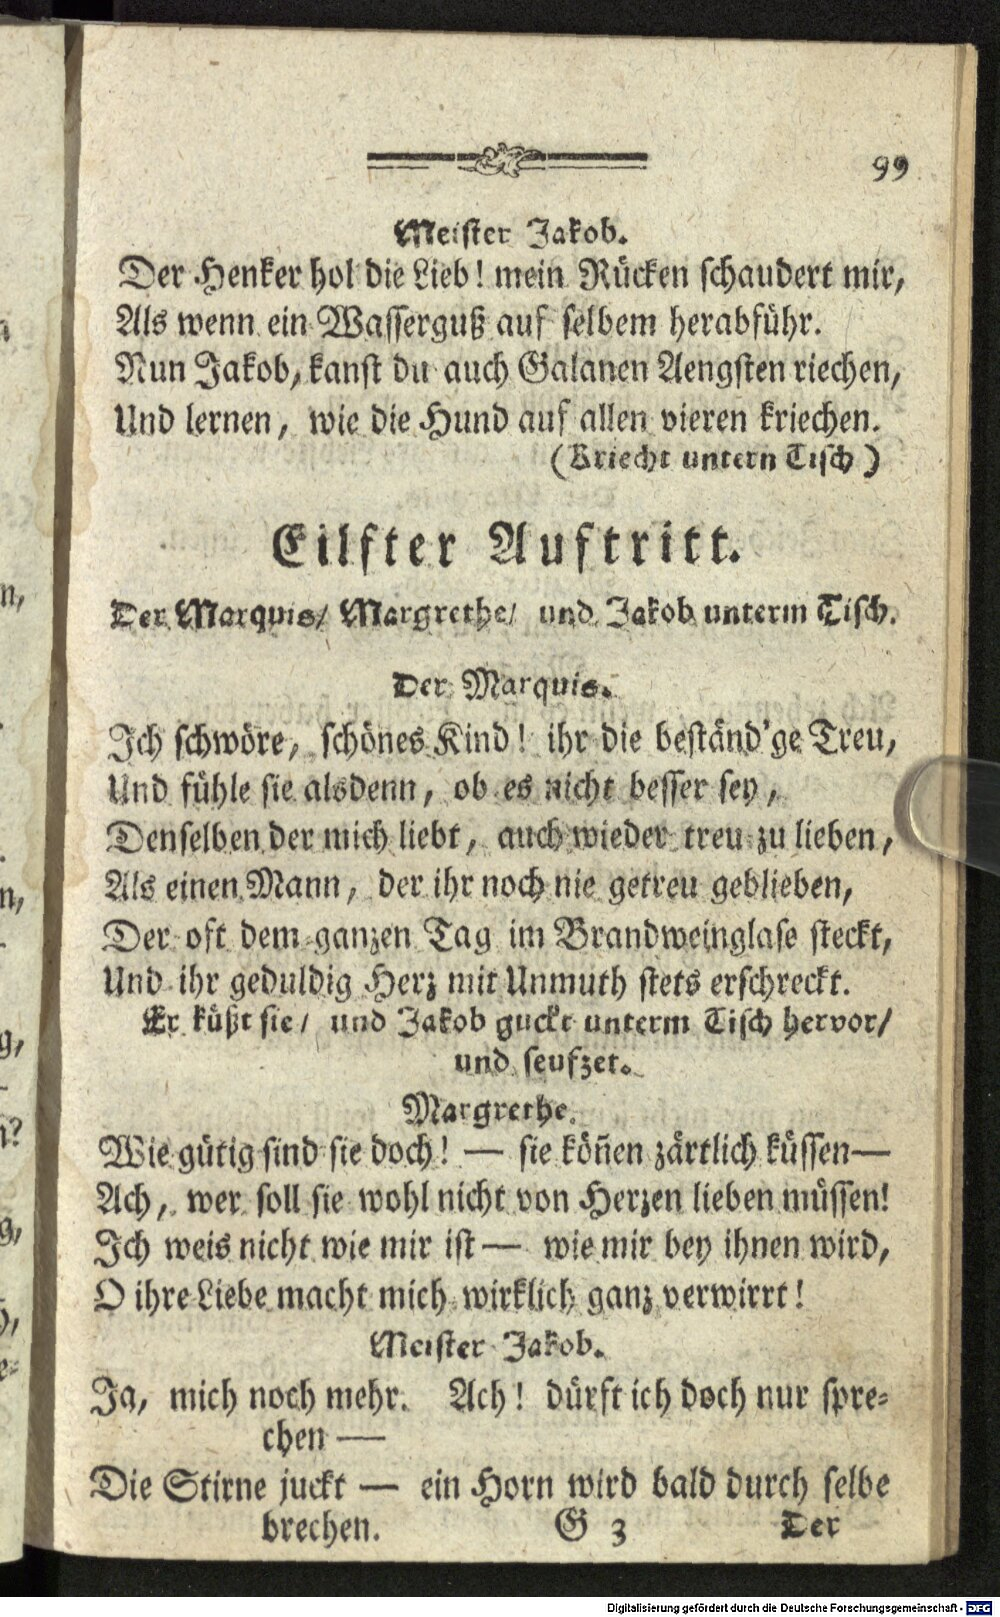 99
Meister Jakob.
Der Henker hol die Lieb! mein Rücken schaudert mir,
Als wenn ein Wasserguß auf selbem herabführ.
Nun Jakob, kanst du auch Galanen Aengsten riechen,
Und lernen, wie die Hund auf allen vieren kriechen.
(Kriecht untern Tisch)
Eilfter Auftritt.
Der Marquis/ Margrethe/ und Jakob unterm Tisch.
Der Marquis.
Ich schwöre, schönes Kind! ihr die beständ'ge Treu,
Und fühle sie alsdenn, ob es nicht besser sey,
Denselben der mich liebt, auch wieder treu zu lieben,
Als einen Mann, der ihr noch nie getreu geblieben,
Der oft dem ganzen Tag im Brandweinglase steckt,
Und ihr geduldig Herz mit Unmuth stets erschreckt.
Er küßt sie/ und Jakob guckt unterm Tisch hervor/
und seufzet.
Margrethe.
Wie gütig sind sie doch! — sie kön̄en zärtlich küssen—
Ach, wer soll sie wohl nicht von Herzen lieben müssen!
Ich weis nicht wie mir ist — wie mir bey ihnen wird,
O ihre Liebe macht mich wirklich ganz verwirrt!
Meister Jakob.
Ja, mich noch mehr. Ach! dürft ich doch nur spre-
chen —
Die Stirne juckt — ein Horn wird bald durch selbe
brechen.
G 3 Der
Digitalisierung gefördert durch die Deutsche Forschungsgemeinschaft - DFG